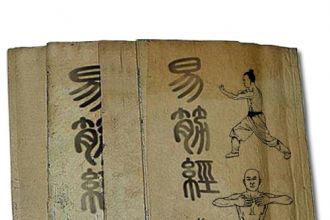 易筋經
易筋經